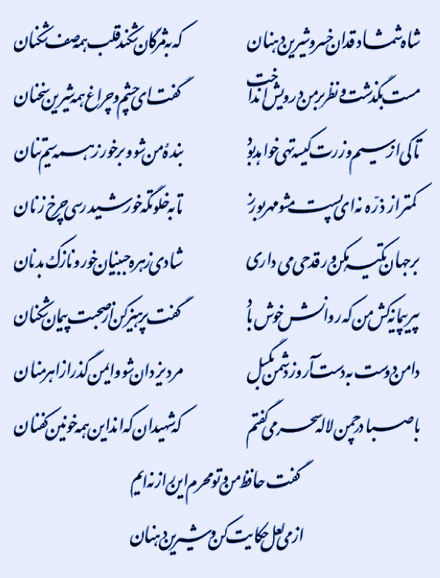 شاه شمشاد قدان خسرو شیرین دهنان که به مژگان شکند قلب همه صف شکنان
مست بگذشت و نظر بر من درویش انداخت گفت ای چشم و چراغ همه شیرین سخنان
تا کی از سیم و زرت کیسه تهی خواهد بود بنده من شو و برخور ز همه سیم تنان
کمتر از ذره نه‌ای پست مشو مهر بورز تا به خلوتگه خورشید رسی چرخ زنان
بر جهان تکیه مکن ور قدحی می داری شادی زهره جبینان خور و نازک بدنان
پیر پیمانه کش من که روانش خوش باد گفت پرهیز کن از صحبت پیمان شکنان
دامن دوست به دست آر و ز دشمن بگسل مرد یزدان شو و ایمن گذر از اهرمنان
با صبا در چمن لاله سحر می گفتم که شهیدان که‌اند این همه خونین کفنان
گفت حافظ من و تو محرم این راز نه‌ایم
از می لعل حکایت کن و شیرین دهنان